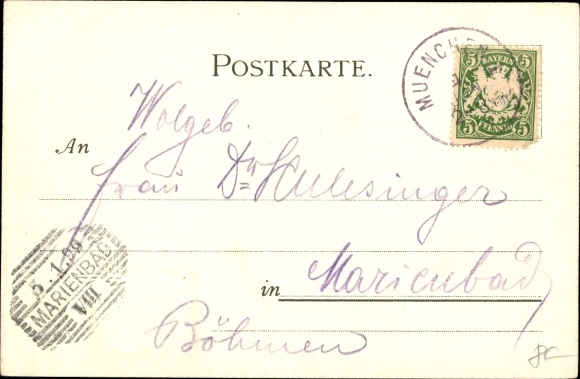 POSTKARTE.
MUENCHEN
5 BAYERN 5
5 PFENNIG 5
Wolgeb.
An
Frau Dr
Marienbad
in
Böhmen
5.1.99
MARIENBAD
VIII